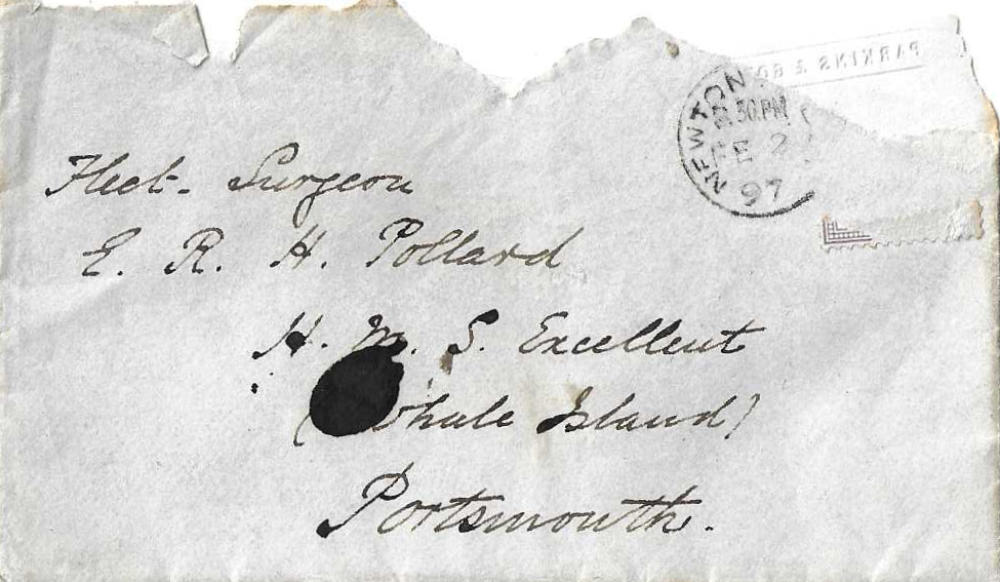 PARKINS &
NEWTON
30.PM
FE 2
97
Fleet-Surgeon
E. R. H. Pollard
H. M. S. Excellent
(Whale Island)
Portsmouth.